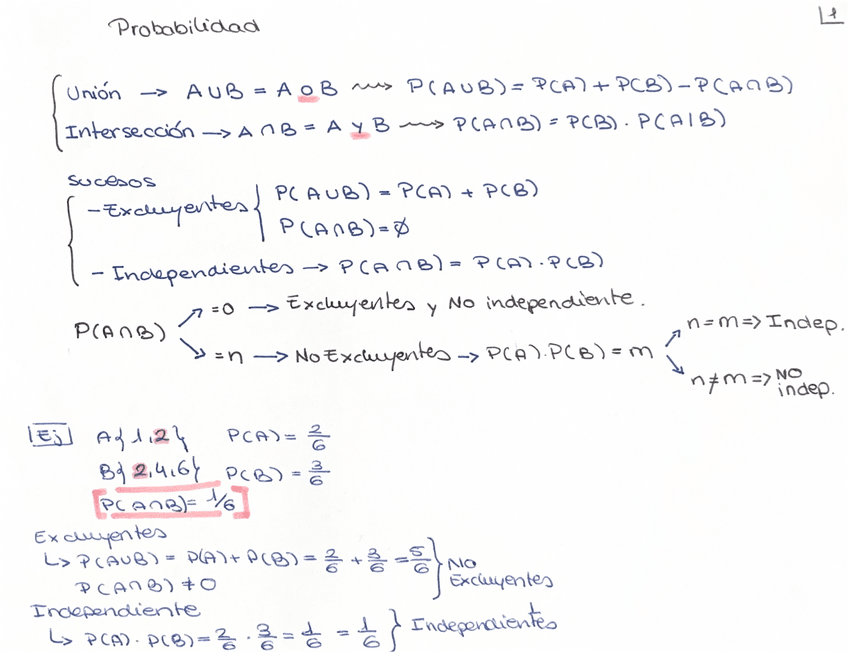 Probabilidad
1
Unión → A∪B = A o B ⇝ P(A∪B) = P(A) + P(B) - P(A∩B)
Intersección → A∩B = A y B ⇝ P(A∩B) = P(B) · P(A|B)
Sucesos
- Excluyentes { P(A∪B) = P(A) + P(B)
P(A∩B) = ∅
- Independientes → P(A∩B) = P(A) · P(B)
P(A∩B)
=0 → Excluyentes y No independiente.
=n → No Excluyentes → P(A)·P(B) = m
n=m => Indep.
n≠m => NO
indep.
Ej A{1,2} P(A) = 2/6
B{2,4,6} P(B) = 3/6
[P(A∩B) = 1/6]
Excluyentes
↳ P(A∪B) = P(A) + P(B) = 2/6 + 3/6 = 5/6
P(A∩B) ≠ 0
} NO
Excluyentes
Independiente
↳ P(A) · P(B) = 2/6 · 3/6 = 1/6 = 1/6 } Independientes